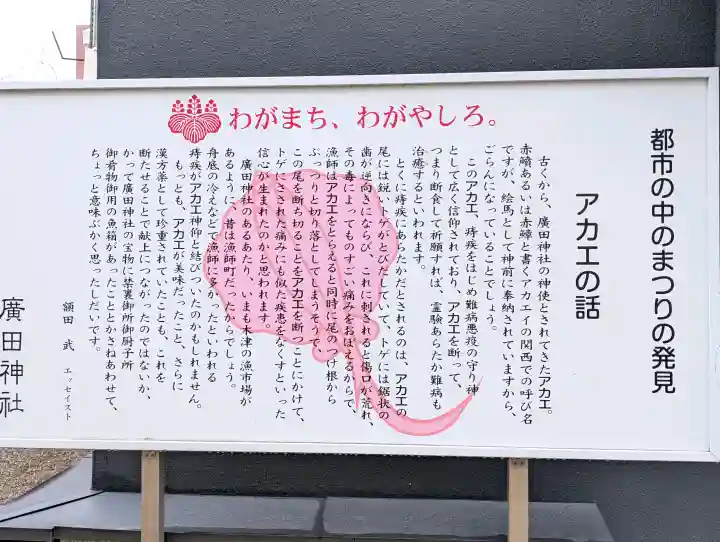 わがまち、わがやしろ。
都市の中のまつりの発見
アカエの話
古くから、廣田神社の神使とされてきたアカエ。
赤鱝あるいは赤鱏と書くアカエイの関西での呼び名
ですが、絵馬として神前に奉納されていますから、
ごらんになっていることでしょう。
このアカエ、痔疾をはじめ難病悪疫の守り神
として広く信仰されており、アカエを断って、
つまり断食して祈願すれば、霊験あらたか難病も
治癒するといわれます。
とくに痔疾にあらたかだとされるのは、アカエの
尾には鋭いトゲがとびだしていて、トゲには鋸状の
歯が逆向きにならび、これに刺されると傷口が荒れ、
その毒によってものすごい痛みをおぼえるからで、
漁師はアカエをとらえると同時に尾のつけ根から
ぶっつりと切り落としてしまうそうで、
この尾を断ち切ることをアカエを断つことにかけて、
トゲにさされた痛みにも似た疾患をなくすといった
信心が生まれたのかと思われます。
廣田神社のあるあたり、いまも木津の漁市場が
あるように、昔は漁師町だったからでしょう。
舟底の冷えなどで漁師に多かったといわれる
痔疾がアカエ神仰と結びついたのかもしれません。
もっとも、アカエが美味だったこと、さらに
漢方薬として珍重されていたことも、これを
断たせることで献上につながったのではないか、
かつて廣田神社の宝物に禁裏御所御厨子所
御肴物御用の魚箱があったこととかさねあわせて、
ちょっと意味ぶかく思ったしだいです。
額田 武 エッセイスト
廣田神社